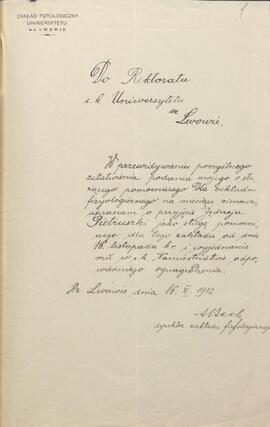 1
ZAKŁAD FIZYOLOGICZNY
UNIWERSYTETU
WE LWOWIE
Do Rektoratu
c. k. Uniwersytetu
we
Lwowie.
W przewidywaniu pomyślnego
załatwienia podania mojego o słu-
żącego pomocniczego dla zakładu
fizyologicznego na miesiące zimowe,
upraszam o przyjęcie Jędrzeja
Pietruszki jako sługę pomocni-
czego dla tego zakładu od dnia
16. listopada b. r. i wyjednanie
mu w c. k. Namiestnictwie odpo-
wiedniego wynagrodzenia.
We Lwowie, dnia 16. XI. 1912
ABeck
dyrektor zakładu fizyologicznego